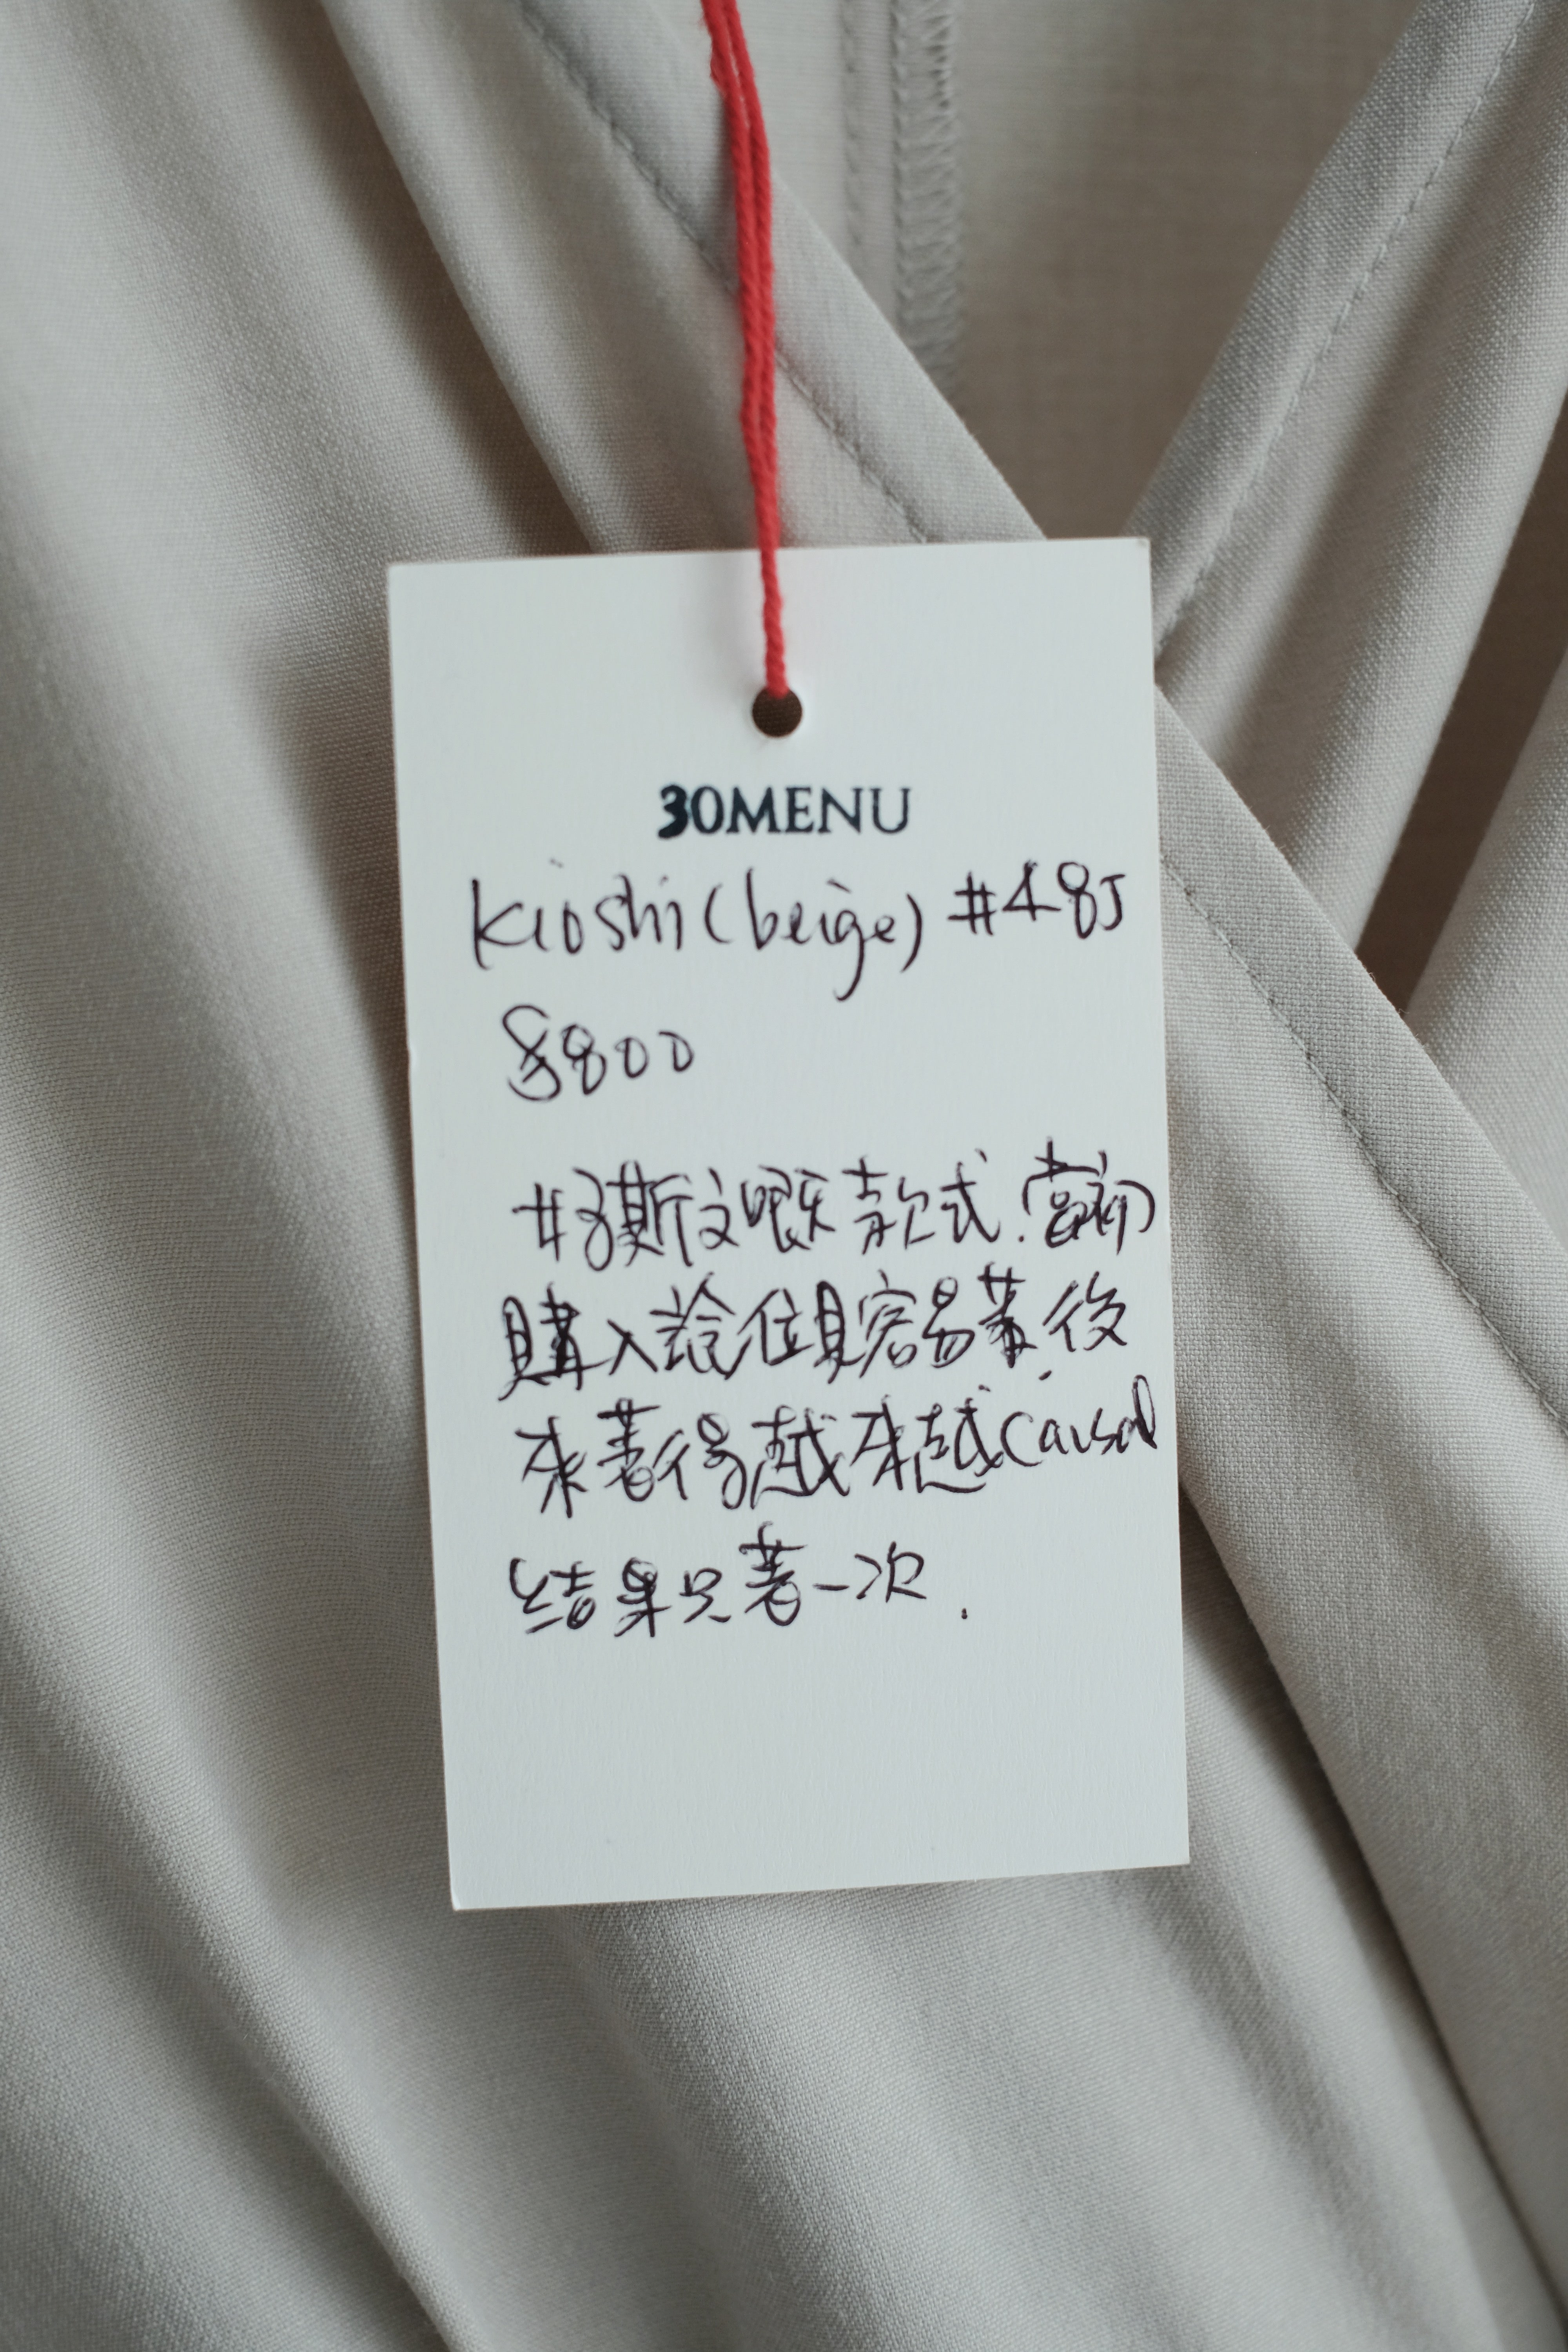 30MENU
Kioshi (beige) #485
$800
#好斯文嘅款式.當初
購入諗位耳容易著,後
來著得越來越causal
结果只著一次.